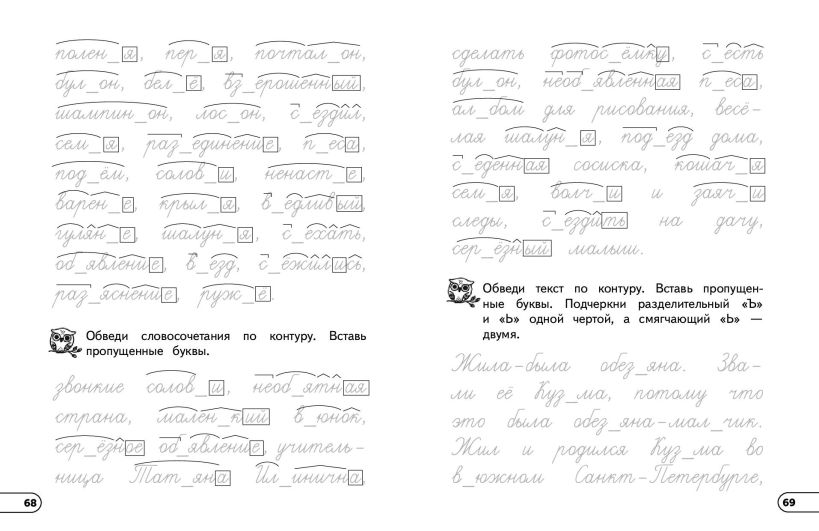 полен_я, пер_я, почтал_он,
бул_он, бел_е, вз_ерошенный,
шампин_он, лос_он, с_ездил,
сем_я, раз_единение, п_еса,
под_ём, солов_и, ненаст_е,
варен_е, крыл_я, в_едливый,
гулян_е, шалун_я, с_ехать,
об_явление, в_езд, с_ёжились,
раз_яснение, руж_е.
Обведи словосочетания по контуру. Вставь
пропущенные буквы.
звонкие солов_и, необ_ятная
страна, мален_кий в_юнок,
сер_ёзное об_явление, учитель-
ница Тат_яна Ил_инична,
68
сделать фотос_ёмку, с_есть
бул_он, необ_явленная п_еса,
ал_бом для рисования, весё-
лая шалун_я, под_езд дома,
с_еденная сосиска, кошач_я
сем_я, волч_и и заяч_и
следы, с_ездить на дачу,
сер_ёзный малыш.
Обведи текст по контуру. Вставь пропущен-
ные буквы. Подчеркни разделительный «Ъ»
и «Ь» одной чертой, а смягчающий «Ь» —
двумя.
Жила-была обез_яна. Зва-
ли её Куз_ма, потому что
это была обез_яна-мал_чик.
Жил и родился Куз_ма во
в_южном Санкт-Петербурге,
69